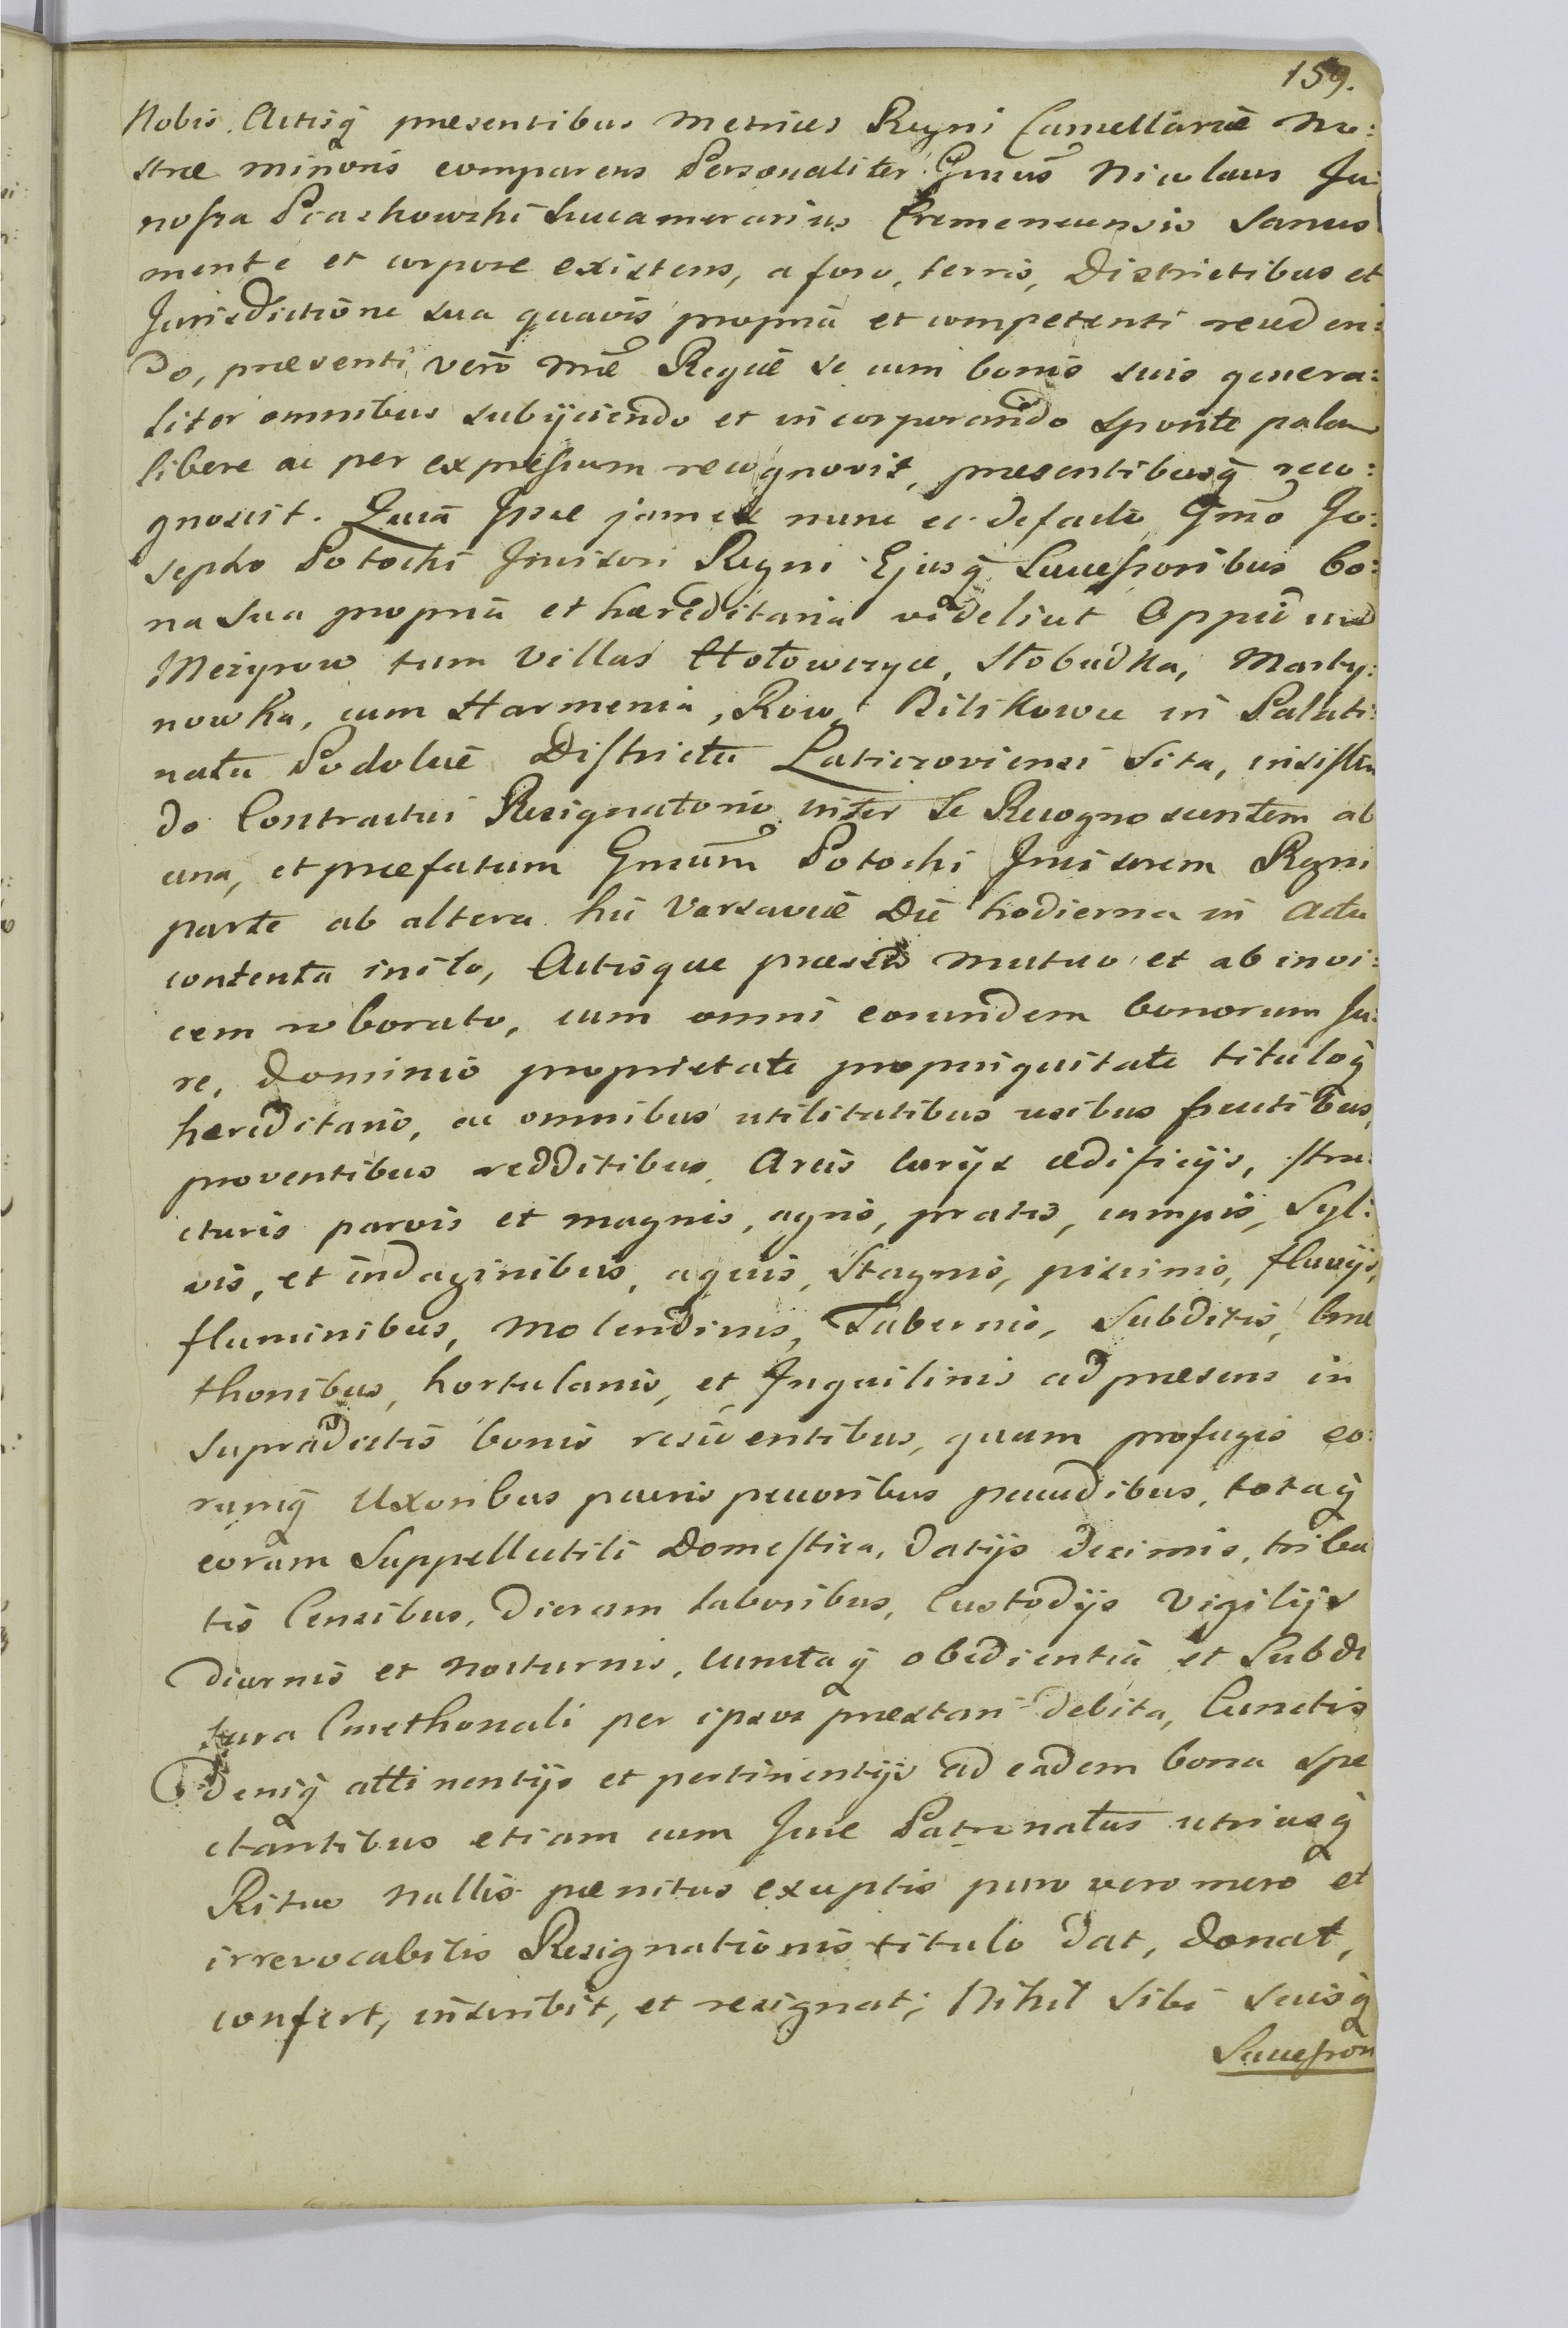 159.
Nobis Actisq̃ praesentibus Metrices Regni Cancellariae No:
strae minoris comparens Personaliter Gnrosus Nicolaus Ju
nosza Piaskowski Succamerarius Cremenecensis Sanus
mente et corpore existens, a foro, terris, Districtibus et
Jurisdictione sua quavis propria et competenti receden:
do, praesenti verò Mttae Regiae se cum bonis suis genera:
liter omnibus subijciendo et incorporando sponte palam
libere ac per expressum recognovit, praesentibusq̃ reco:
gnoscit. Quia Ipse jam ex nunc et defacto Gnso Jo:
sepho Potocki Incisori Regni Ejusq̃ Successoribus bo:
na sua propria et haereditaria videlicet Oppidum
Mezyrow tum Villas Hołowczyce, Słobudka, Marty:
nowka, cum Harmenia, Row, Bilikowce in Palati:
natu Podoliae Districtu Laticzoviensi Sita, insisten
do Contractui Resignatorio inter Se Recognoscentem ab
una, et praefatum Gnsum Potocki Incisorem Regni
parte ab altera hic Varsaviae Die hodierna in Actu
contenta inito, Actisque praesen mutuo et ab invi:
cem roborato, cum omni eorundem bonorum Ju:
re, dominio proprietate propinquitate tituloq̃
hereditario, ac omnibus utilitatibus usibus fructibus,
proventibus redditibus Areis curijs aedificijs, stru:
cturis parvis et magnis, agris, pratis, campis, Syl:
vis, et indaginibus, aquis, Stagnis, piscinis, fluvijs,
fluminibus, Molendinis, Tabernis, Subditis, Cme
thonibus, hortulanis, et Inquilinis ad praesens in
supradictis bonis residentibus, quam profugis eo:
rumq̃ Uxoribus pueris pecoribus pecudibus, totaq̃
eorum Suppellectili Domestica, datijs decimis, tribu
tis Censibus, dierum laboribus, Custodijs Vigilijs
diurnis et nocturnis, cunctaq̃ obedientia et Subdi
tura Cmethonali per ipsos praestari debita, Cunctis
deniq̃ attinentijs et pertinentijs ad eadem bona spe
ctantibus etiam cum Jure Patronatus utriusq̃
Ritus nullis paenitus exceptis puro vero mero et
irrevocabilis Resignationis titulo dat, donat,
confert, inscribit, et resignat; Nihil sibi suisq̃
Successori